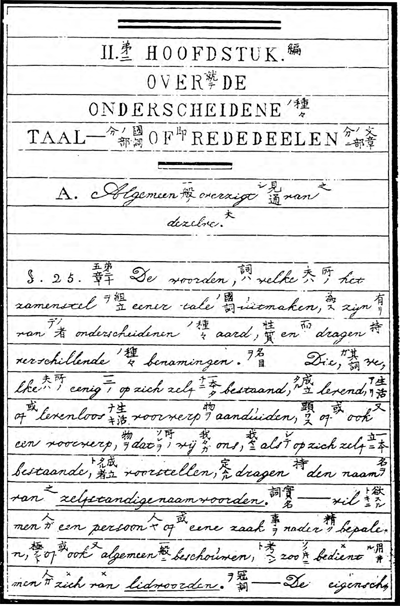 II. 第二 HOOFDSTUK. 編
OVER 就テ DE
ONDERSCHEIDENE ノ 種々
TAAL— 分ノ國部詞 OF 即 REDEDEELEN 分ノ文章部
A. Algemeen 一般 overzigt シ見通 van 之
dezelve. 大
§. 25. 第二十五章 De woorden, 詞ハ welke 夫ハ所ノ, het
zamenstel ヲ組立 eener tale ノ國詞 uitmaken, 為ス zijn 有リ
van デノ者 onderscheidenen ノ種々 aard, 性質 en 而 dragen 持
verschillende ノ種々 benamingen. ヲ名目 Die, ガ其詞 we,
lke 夫ハ所ノ, eenig 一ニ, op zich zelf 一本 bestaand, 成立 levend, 生活
of 或 levenloos 生活 voorwerp 物 aanduiden, 顕ワス of 或 ook 又
een voorwerp, 物 dat 所ノ wij 我々ガ ons, 我々ニ als op zich zelf 一本立
bestaande, 成立 voorstellen, 定ル dragen 持 den naam 名
van 之 zelfstandige naamwoorden. 實名詞 — wil 欲スル
men 人ガ een persoon 人 of 或 eene zaak 事ヲ nader 精 bepale.
n, 極 of 或 ook 又 algemeen 一般ニ beschouwen, 考 zoo bedient 用
men 人ガ zich van lidwoorden. ヲ冠詞 — De eigensch,